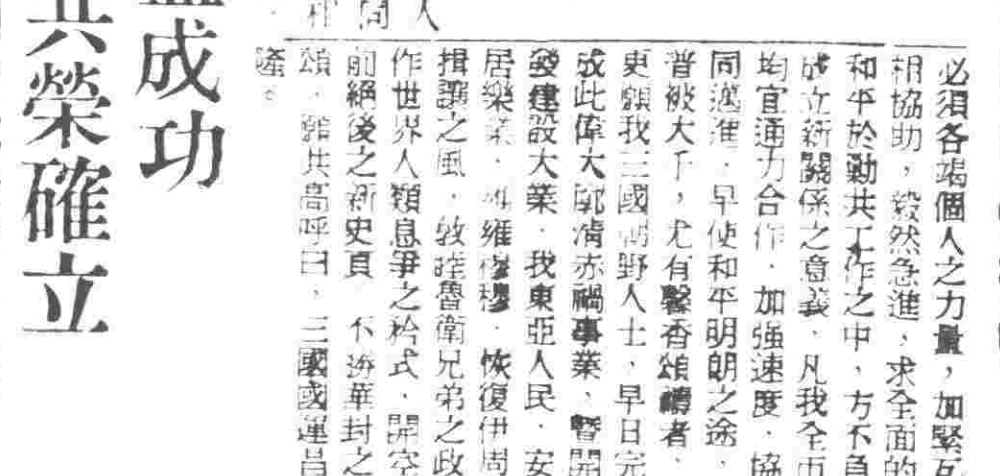 人同
必須各竭個人之力量，加緊互
相協助，毅然急進，求全面的
和平於勤共工作之中，方不負
成立新關係之意義，凡我全市
均宜通力合作，加强速度，協
同邁進，早使和平明朗之途，
普被大千，尤有馨香頌禱者，
更願我三國朝野人士，早日完
成此偉大廓清赤禍事業，暨開
發建設大業，我東亞人民，安
居樂業，雍穆穆，恢復伊周
揖讓之風，敦睦魯衛兄弟之政
作世界人類息爭之矜式，開空
前絕後之新史頁，不揣華封之
頌，願共高呼曰，三國國運昌
隆。
成功
共榮確立